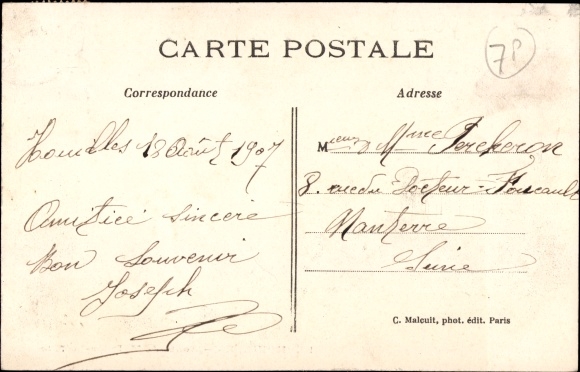 CARTE POSTALE
7P
Correspondance
Adresse
Houilles 18 Août 1907
Amitice sincère
Bon souvenir
Joseph
Mieur & Mme Percheron
8. rue du Docteur-Foucault
Nanterre
Seine
C. Malcuit, phot. édit. Paris